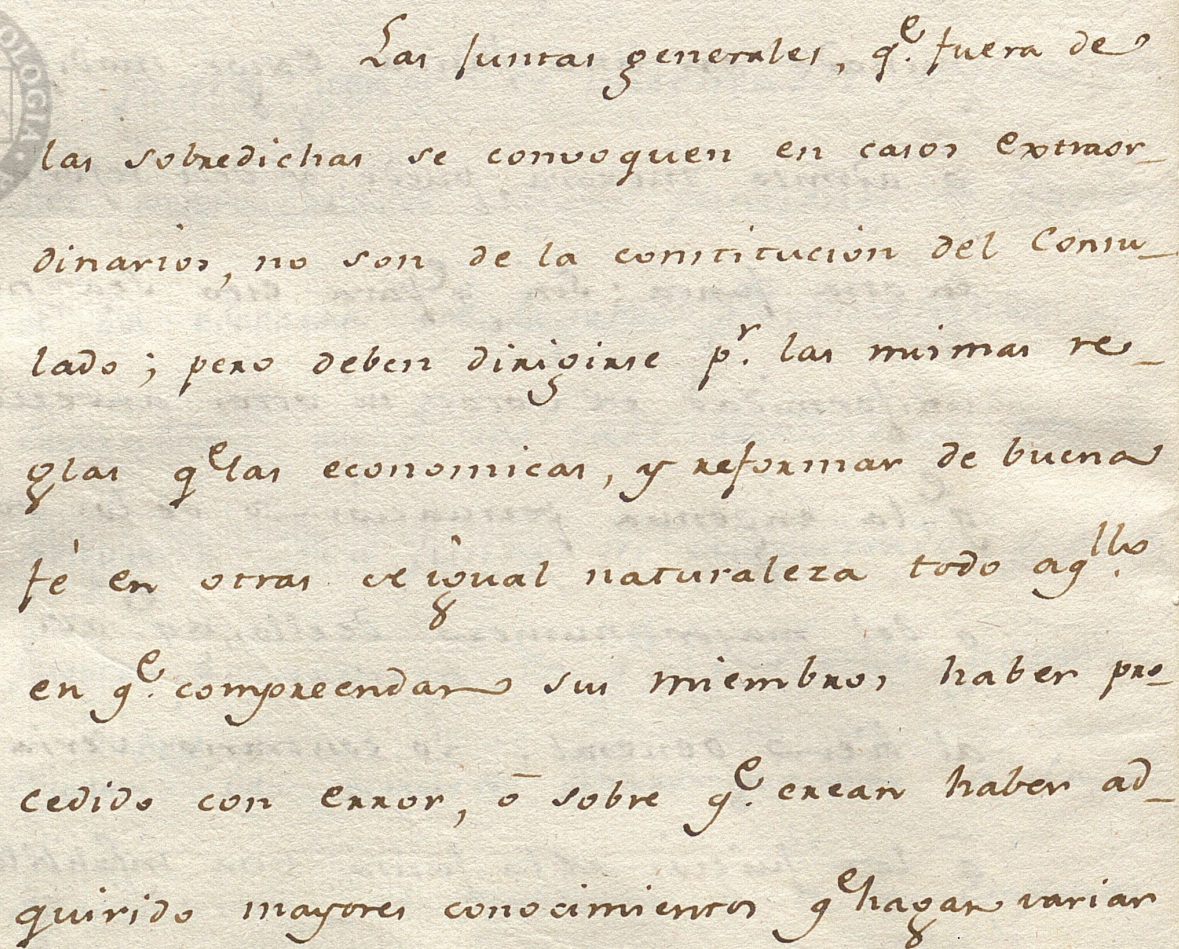 Las juntas generales, q.e fuera de
las sobredichas se convoquen en casos extraor-
dinarios, no son de la constitución del Consu-
lado; pero deben dirigirse p.r las mismas re-
glas q.e las economicas, y reformar de buena
fé en otras de igual naturaleza todo aq.llo
en q.e compreendan sus miembros haber pro-
cedido con error, ó sobre q.e crean haber ad-
quirido mayores conocimientos q.e hagan variar
OLOGIA